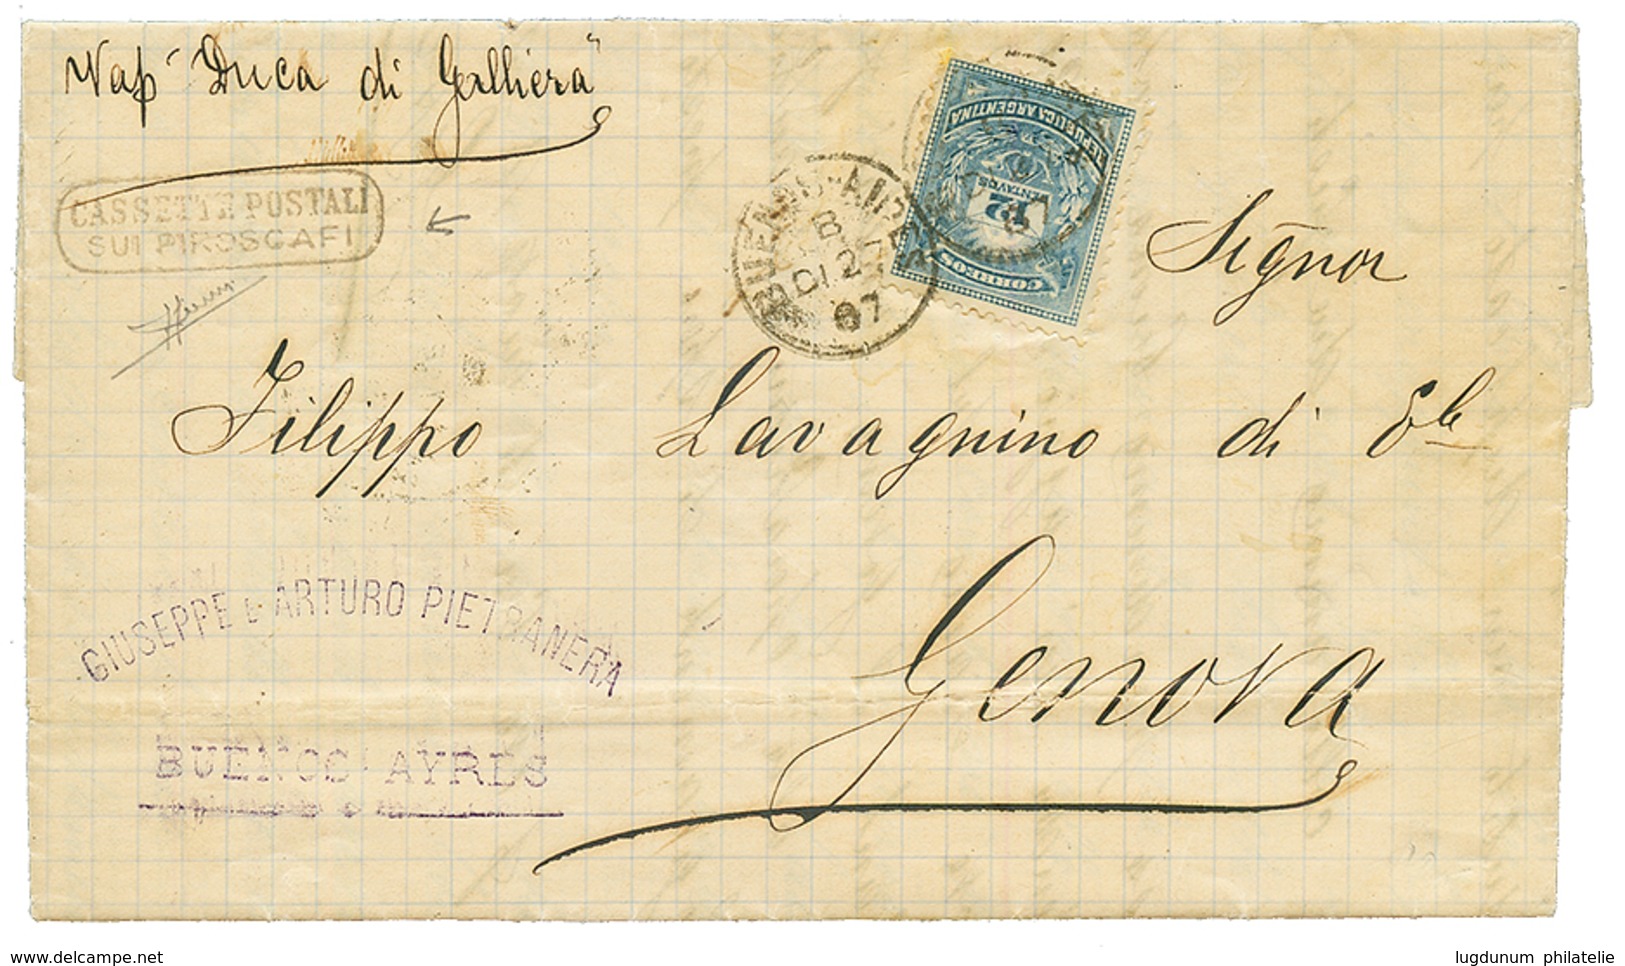 Vap "Duca di Galliera"
CASSETTE POSTALI
SUI PIROSCAFI
REPUBLICA ARGENTINA
12
CENTAVOS
CORREOS
BUENOS-AIRES
DI 27
87
Signor
Filippo Lavagnino di
Genova
GIUSEPPE E ARTURO PIETRANERA
BUENOS AYRES
www.delcampe.net
lugdunum philatelie